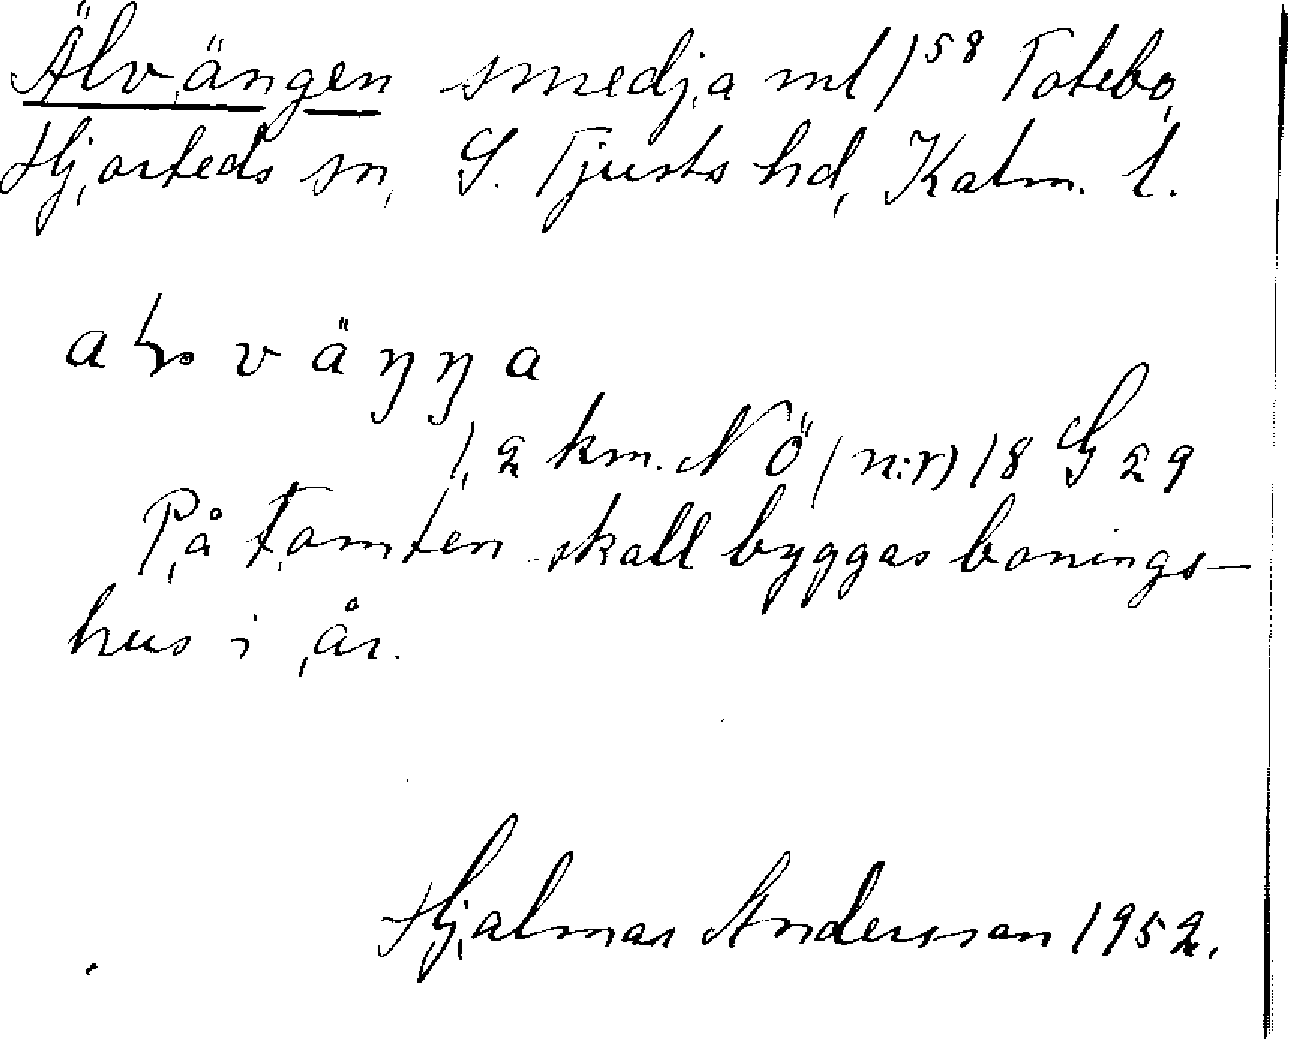 Älvängen smedja ml 1⁵⁸ Totebo,
Hjorteds sn, S. Tjusts hd, Kalm. l.
v ä ŋ ŋ a
1,2 km. N Ö (n:r) 18 G 29
På tomten skall byggas bonings-
hus i år.
Hjalmar Andersson 1952.